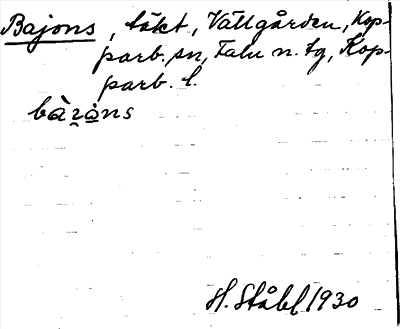 Bajons, täkt, Vällgården, Kop-
parb. sn, Falu n. tg, Kop-
parb. l.
H. Ståhl 1930